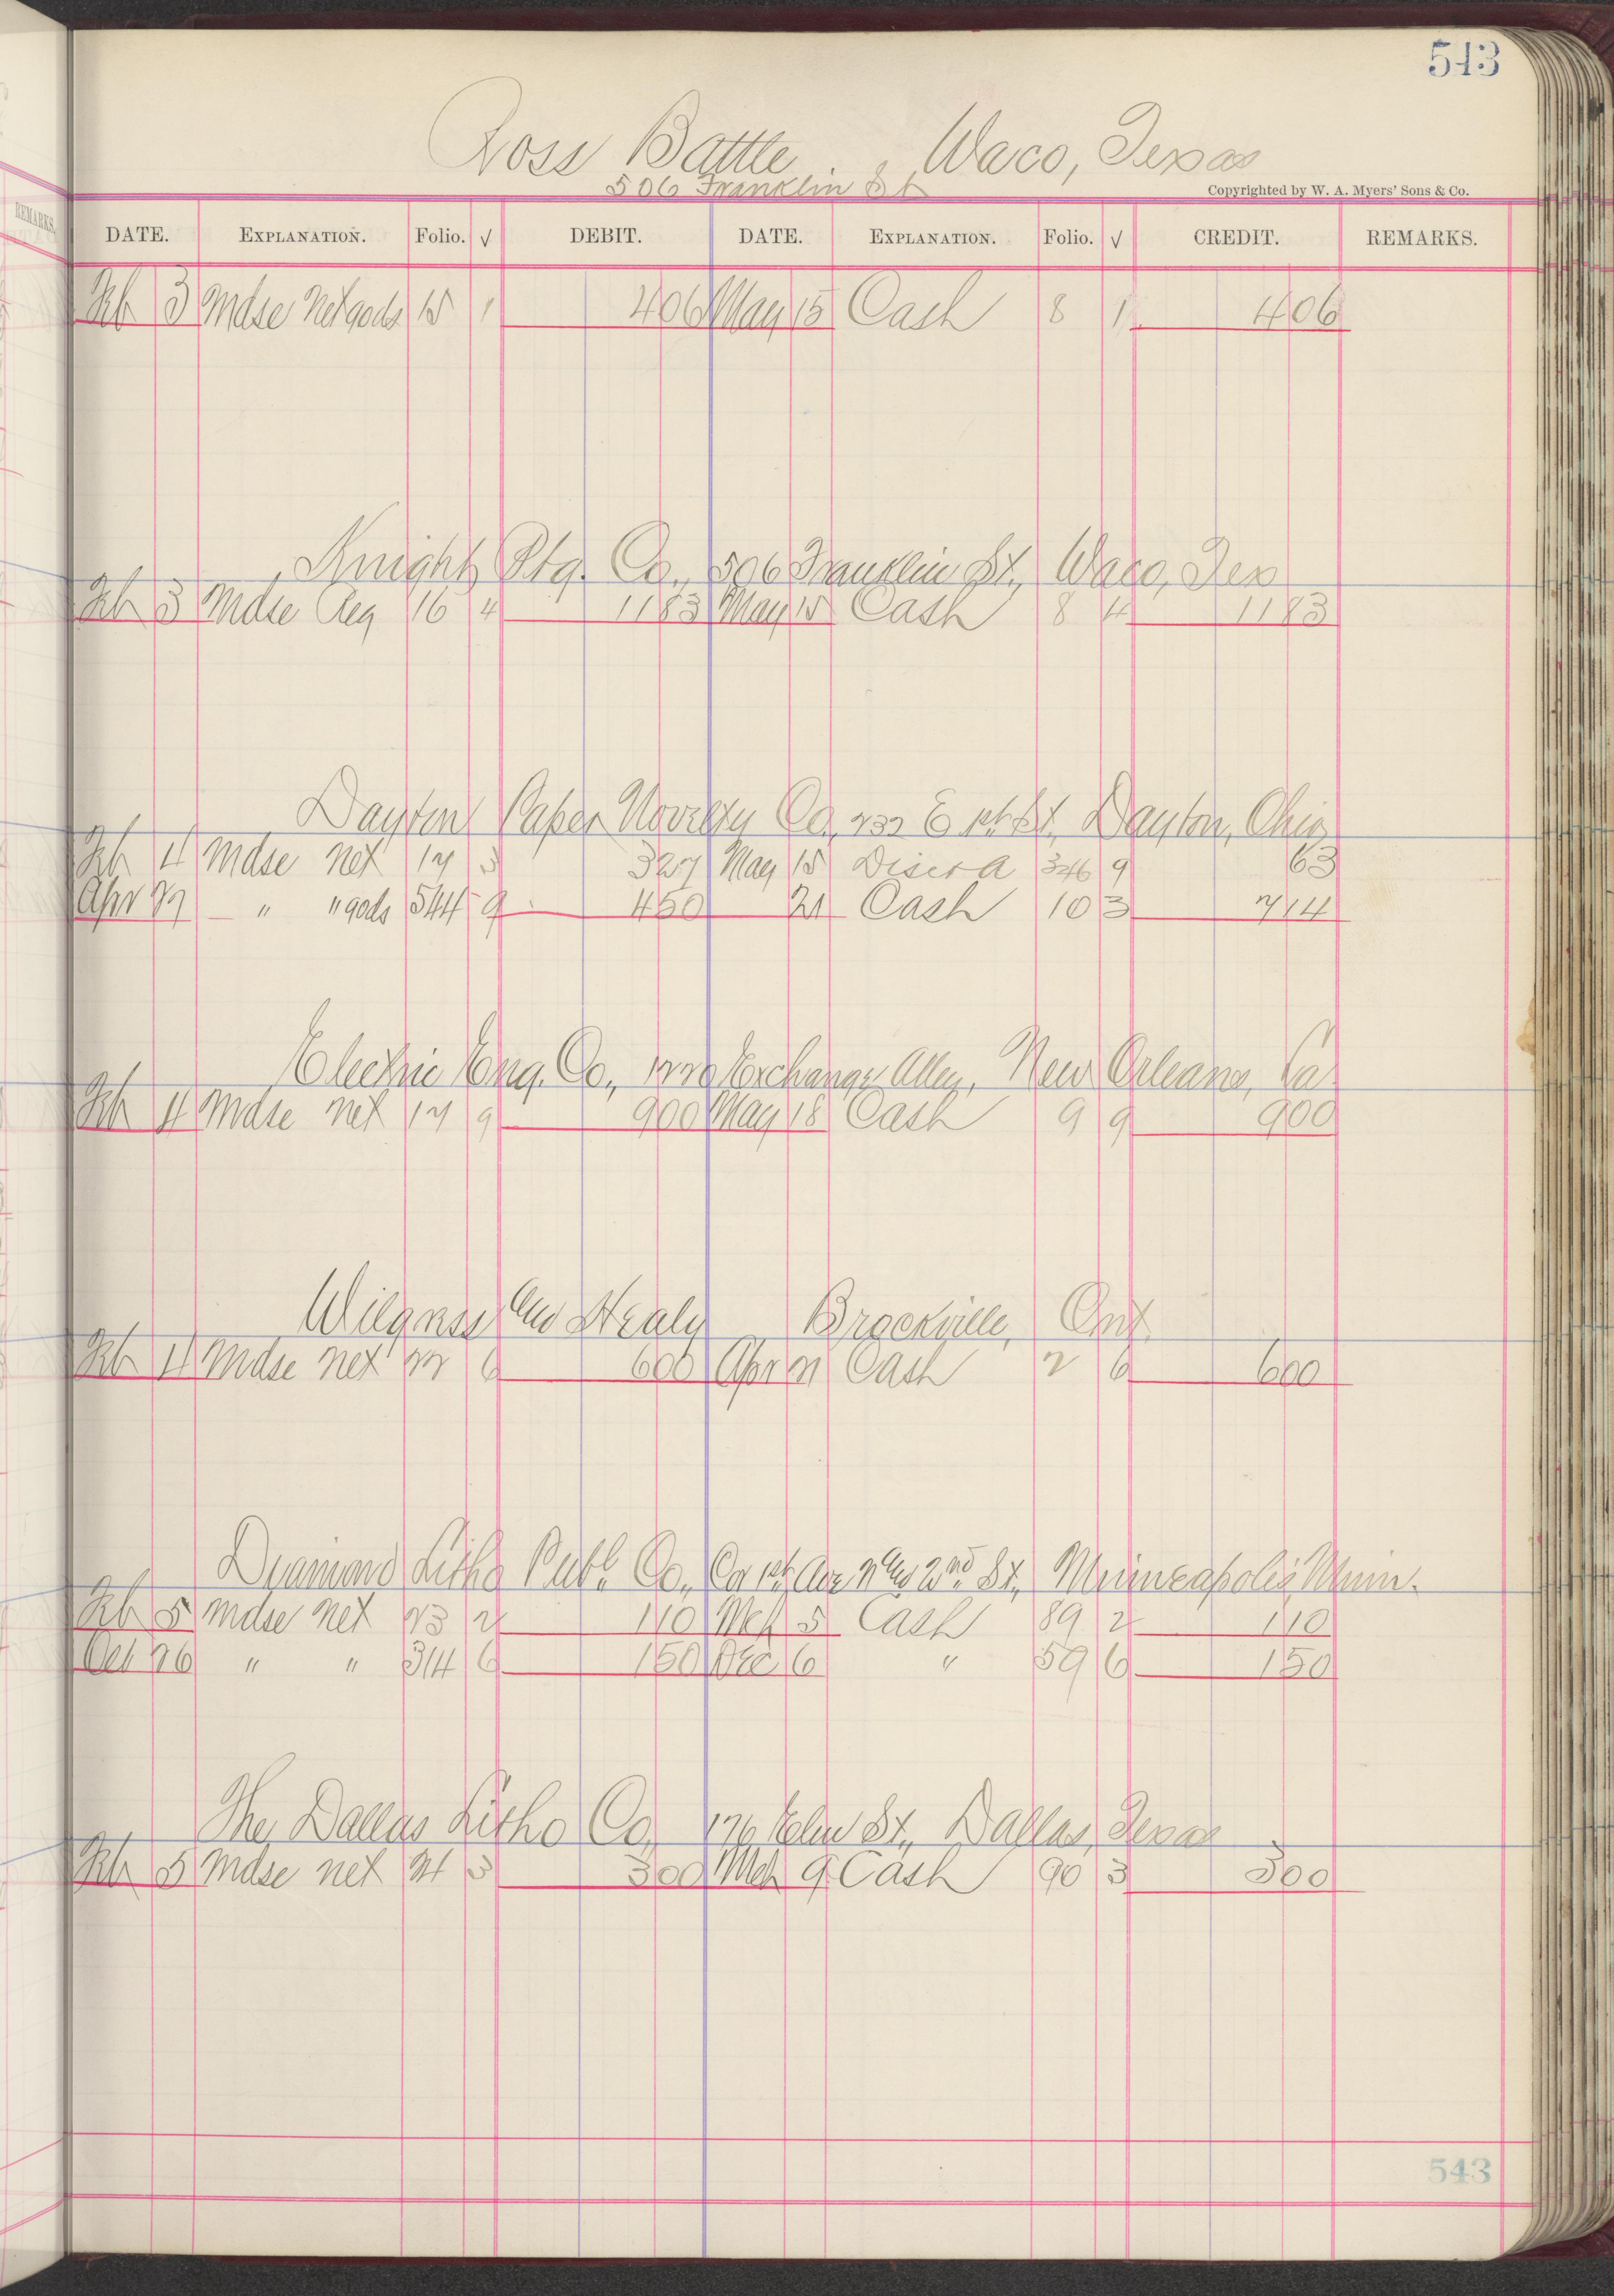 543
Ross Battle, Waco, Texas
506 Franklin St
Copyrighted by W. A. Myers' Sons & Co.
REMARKS.
DATE. EXPLANATION. Folio. √ DEBIT. DATE. EXPLANATION. Folio. √ CREDIT. REMARKS.
Feb 3 Mdse Net gods 15 1 406 May 15 Cash 8 1 406
Knight Ptg. Co., 506 Franklin St., Waco, Tex
Feb 3 Mdse Reg 16 4 1183 May 15 Cash 8 4 1183
Dayton Paper Novelty Co, 232 E St, Dayton, Ohio
Feb 4 Mdse Net 17 3 327 May 15 Disct a 346 9 63
Apr 27 " " gods 544 9 450 21 Cash 10 3 714
Electric Eng. Co., Exchange Alley, New Orleans, La
Feb 4 Mdse net 17 9 900 May 18 Cash 9 9 900
and Healy Brockville, Ont
Feb 4 Mdse net 22 6 600 Apr 21 Cash 2 6 600
Diamond Litho Publ. Co., Cor 1st Ave N and 2nd St., Minneapolis, Minn.
Feb 5 Mdse Net 23 2 110 Mch 5 Cash 89 2 110
Oct 26 " " 314 6 150 Dec 6 " 59 6 150
The Dallas Litho Co, 176 Elm St., Dallas, Texas
Feb 5 Mdse net 24 3 300 Mch 9 Cash 90 3 300
543